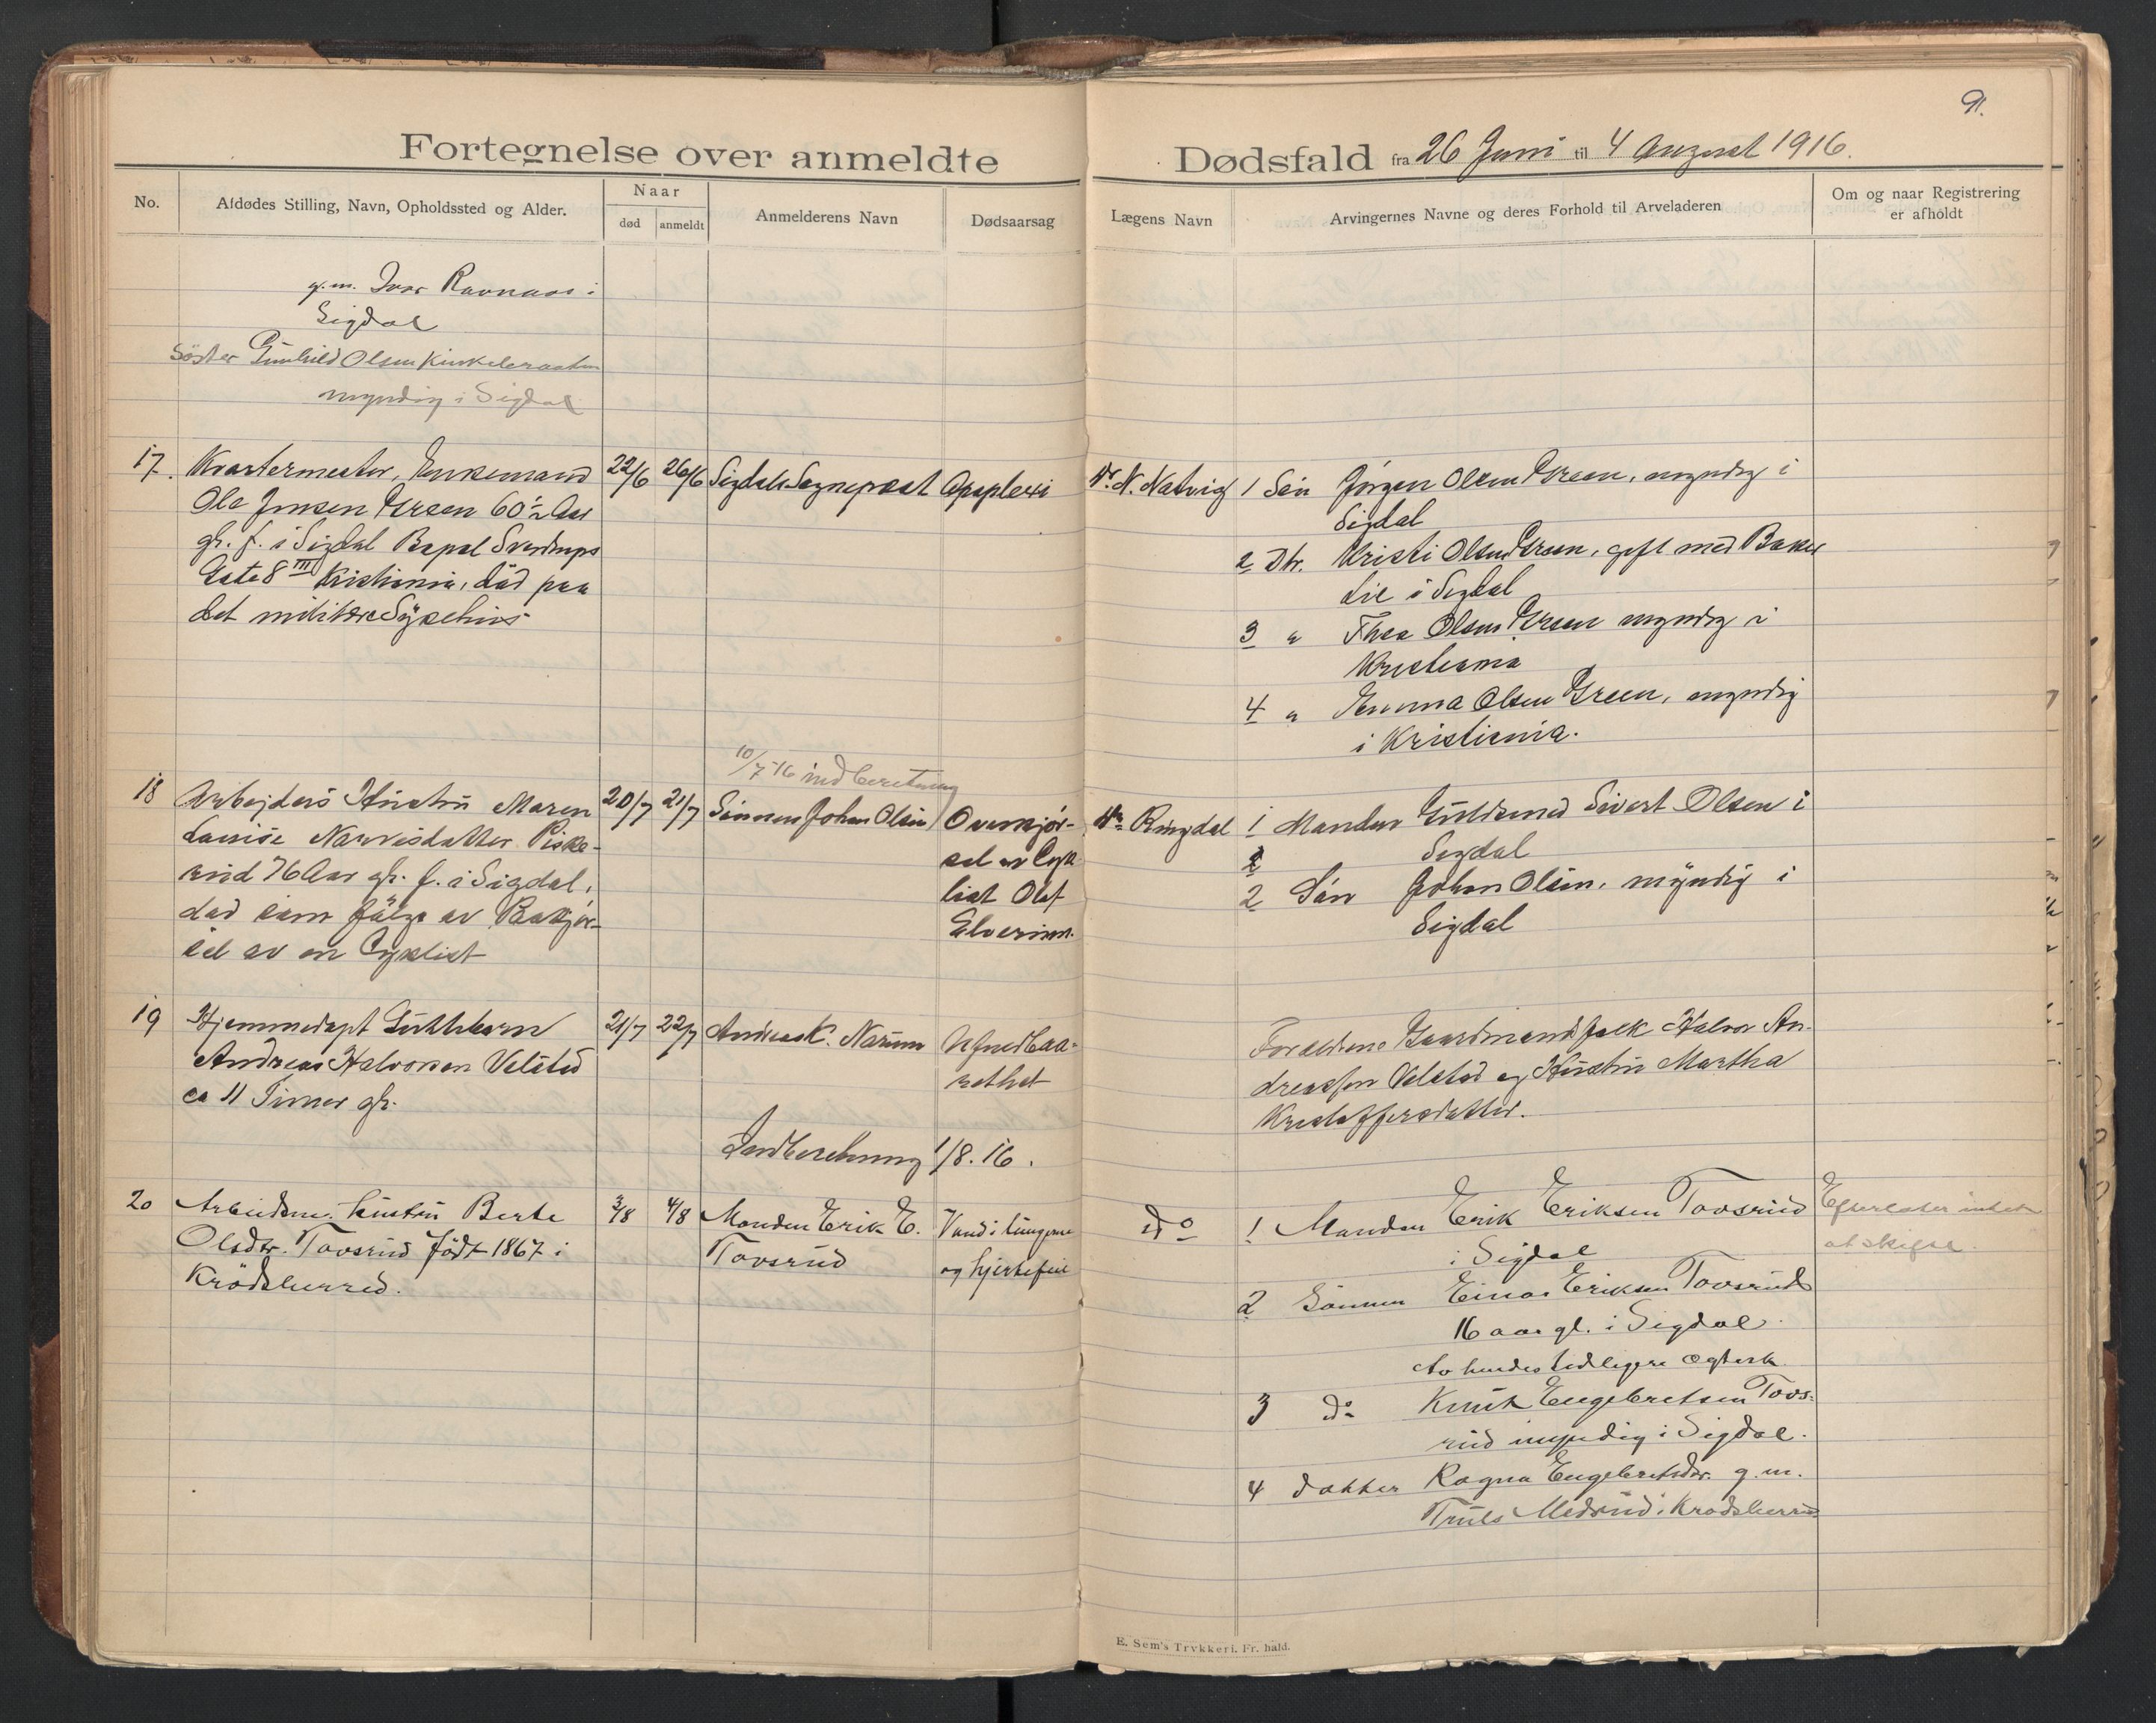 91.
Fortegnelse over anmeldte
Dødsfald fra 26 Juni til 4 August 1916.
No.
Afdødes Stilling, Navn, Opholdssted og Alder.
Naar
død
anmeldt
Anmelderens Navn
Dødsaarsag
Lægens Navn
Arvingernes Navne og deres Forhold til Arveladeren
Om og naar Registrering
er afholdt
g.m. Ivar Ravnaas i
Sigdal
Söster Gunhild Olsen
myndig i Sigdal
17. Kvartermester, Enkemand
Ole Jensen Green 60½ Aar
gl. f. i Sigdal Bopæl Sverdrups
Gate 8 III Kristiania, död paa
det militære Sykehus
22/6
26/6
Sigdals Sogneprest
Apoplexi
Dr. N. Natvig
1 Sön Jörgen Olsen Green, myndig i
Sigdal
2 Dtr. Kristi Olsen Green, gift med Baker
Lie i Sigdal
3 " Thea Olsen Green myndig i
Kristiania
4 " Emma Olsen Green, myndig
i Kristiania.
10/7-16 indberetning
18 Arbejders Hustru Maren
Lauise Narvesdatter Piske-
rud 76 Aar gl. f. i Sigdal,
død som følge av
sel av en Cyklist
20/7
21/7
Sönnen Johan Olsen
Overkjör-
sel av Cyk-
list Olaf
Dr. Ringdal
1 Manden Sivert Olsen i
Sigdal
2
2 Sön Johan Olsen, myndig i
Sigdal
19 Hjemmedøpt
Andreas Halvorsen Velstad
ca 11 Timer gl.
21/7
22/7
Andreas K. Narum
Ufuldbaa-
rethet
Forældrene Gaardmandsfolk Halvor An-
dreassen Velstad og Hustru Martha
Kristoffersdatter.
Indberetning 1/8. 16.
20 Arbeidsm. hustru Berte
Olsdtr. Tovsrud födt 1867 i
Krödsherred.
3/8
4/8
Manden Erik E.
Tovsrud
Vand i lungerne
og hjertefeil
do
1 Manden Erik Eriksen Tovsrud
i Sigdal
2 Sönnen Einar Eriksen Tovsrud
16 aar gl. i Sigdal.
Av hendes tidligere ægtesk.
3 do Knut Engebretsen Tovs-
rud myndig i Sigdal.
4 datter Ragna Engebretsdtr. g.m.
Truls Medrud i Krödsherred
Efterlater intet
at skifte.
E. Sem's Trykkeri. Fr. hald.